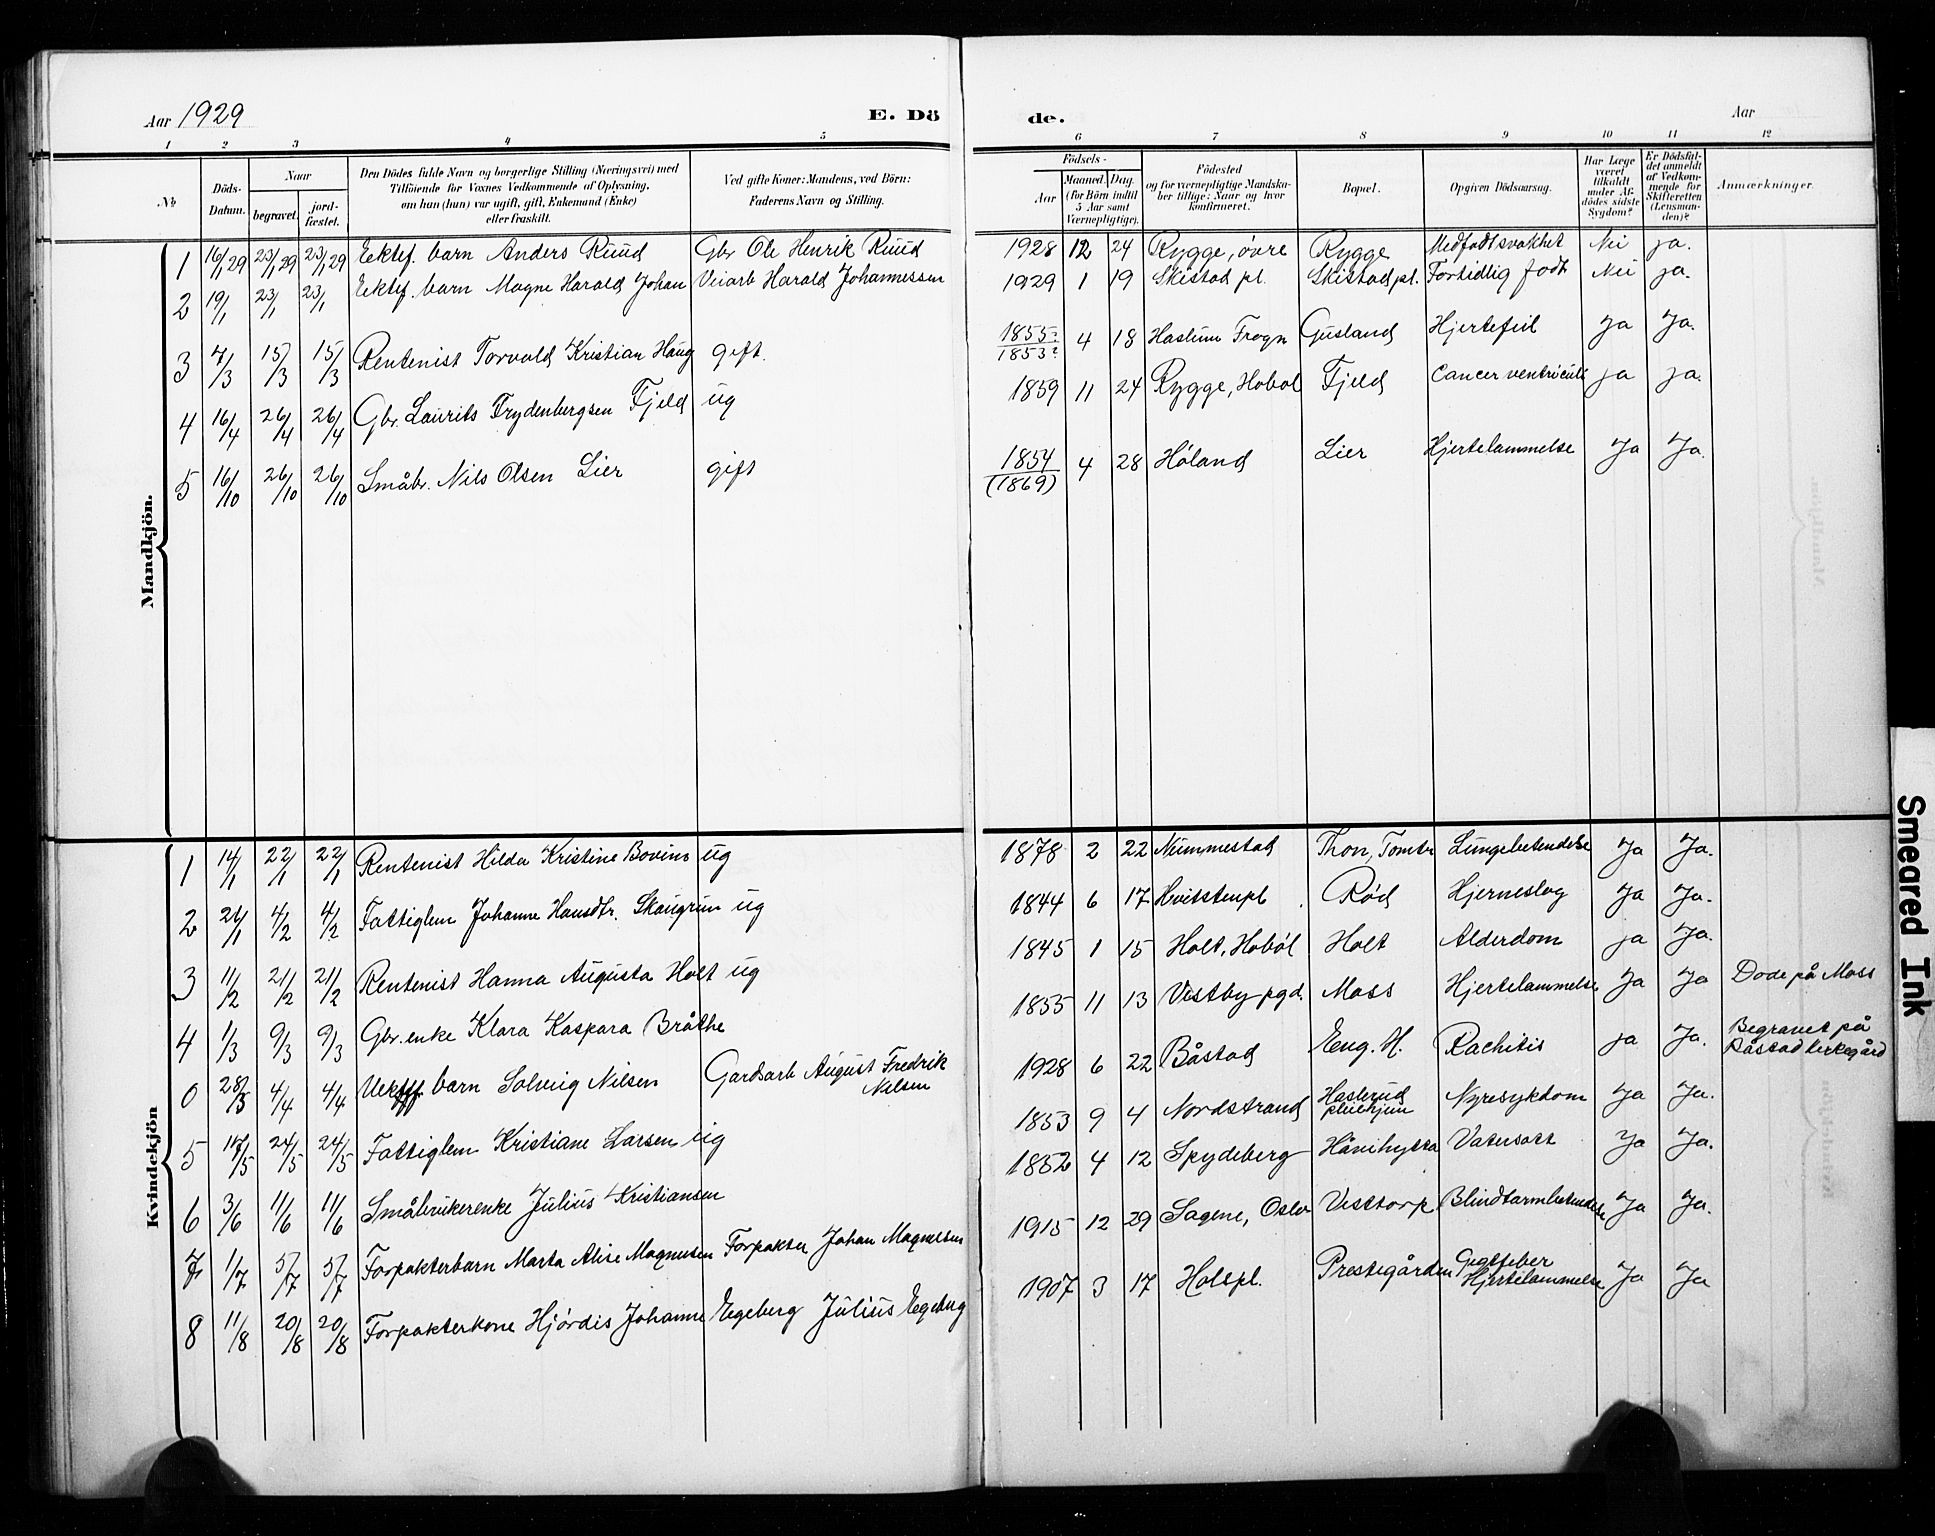 Aar 1929
E. Döde.
Aar
1 2 3 4 5 6 7 8 9 10 11 12
№
Döds-Datum.
Naar
begravet.
jord-fæstet.
Den Dödes fulde Navn og borgerlige Stilling (Næringsvei) med
Tilföiende for Voxnes Vedkommende af Oplysning,
om hun (hun) var ugift, gift, Enkemand (Enke)
eller fraskilt.
Ved gifte Koner: Mandens, ved Börn:
Faderens Navn og Stilling.
Födsels-
Aar
Maaned. Dag.
(for Börn indtil
5 Aar samt
Værnepligtige).
Födested
og for værnepligtige Mandska-
ber tillige: Naar og hvor
konfirmeret.
Bopæl.
Opgiven Dödsaarsag.
Har Læge
været
tilkaldt
under Af-
dödes sidste
Sygdom?
Er Dödsfal-
det anmeldt
af Vedkom-
mende for
Skifteretten
(Lensman-
den)?
Anmærkninger.
Mandkjön.
1 16/1 29 23/1 29 23/1 29 Ektef. barn Anders Ruud Gbr Ole Henrik Ruud 1928 12 24 Rygge, övre Rygge Medfødt svakhet Nei ja.
2 19/1 23/1 23/1 Ektef. barn Magne Harald Johan Veiarb Harald Johannessen 1929 1 19 Skistad pl. Skistad pl. Fortidlig født Nei ja.
3 7/3 15/3 15/3 Rentenist Torvald Kristian Haug gift. 1855? 1853? 4 18 Haslum Frogn Gusland Hjertefeil Ja Ja.
4 16/4 26/4 26/4 Gbr. Laurits Frydenbergsen Fjeld ug 1859 11 24 Rygge, Hobøl Fjeld Cancer ventriculi ja ja.
5 16/10 26/10 26/10 Småbr. Nils Olsen Lier gift 1854 (1869) 4 28 Høland Lier Hjertelammelse Ja Ja.
Kvindekjön
1 14/1 22/1 22/1 Rentenist Hilda Kristine Bovim ug 1878 2 22 Nummestad Thon, Tomter Lungebetendelse Ja Ja.
2 24/1 4/2 4/2 Fattiglem Johanne Hansdtr. Skaugrim ug 1844 6 17 Hvitstenpl. Rød Hjerneslag Ja Ja.
3 11/2 21/2 21/2 Rentenist Hanna Augusta Holt ug 1845 1 15 Holt, Hobøl Holt Alderdom ja Ja.
4 1/3 9/3 9/3 Gbr. enke Klara Kaspara Bråthe 1855 11 13 Vestby pgd. Moss Hjertelammelse Ja Ja Døde på Moss
0 28/3 4/4 4/4 barn Solveig Nilsen Gardsarb August Fredrik Nilsen 1928 6 22 Båstad Eng. H. Rachitis ja Ja. Begravet på Båstad kirkegård
5 17/5 24/5 24/5 Fattiglem Kristiane Larsen ug 1853 9 4 Nordstrand Haslerud pleiehjem Nyresykdom Ja Ja.
6 3/6 11/6 11/6 Småbrukerenke Julius Kristiansen 1852 4 12 Spydeberg Håvihytta Vatersott Ja Ja.
7 1/7 5/7 5/7 Forpakterbarn Marta Alise Magnusen Forpakter Johan Magnusen 1915 12 29 Sagene, Oslo Vesttorp Blindtarmbetendelse Ja Ja.
8 11/8 20/8 20/8 Forpakterkone Hjørdis Johanne Egeberg Julius Egeberg 1907 3 17 Holspl. Prestegården Giktfeber Hjertelammelse Ja Ja
Smeared Ink